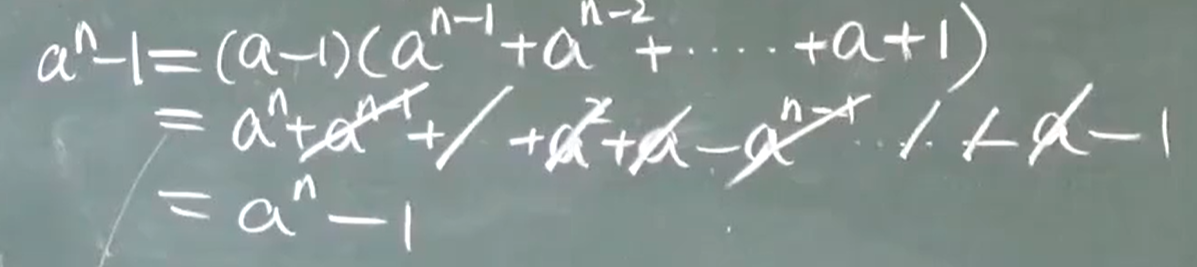 aⁿ-1=(a-1)(aⁿ⁻¹+aⁿ⁻²+·····+a+1)
=aⁿ+aⁿ⁻¹+ +a²+a-aⁿ⁻¹····-a-1
=aⁿ-1